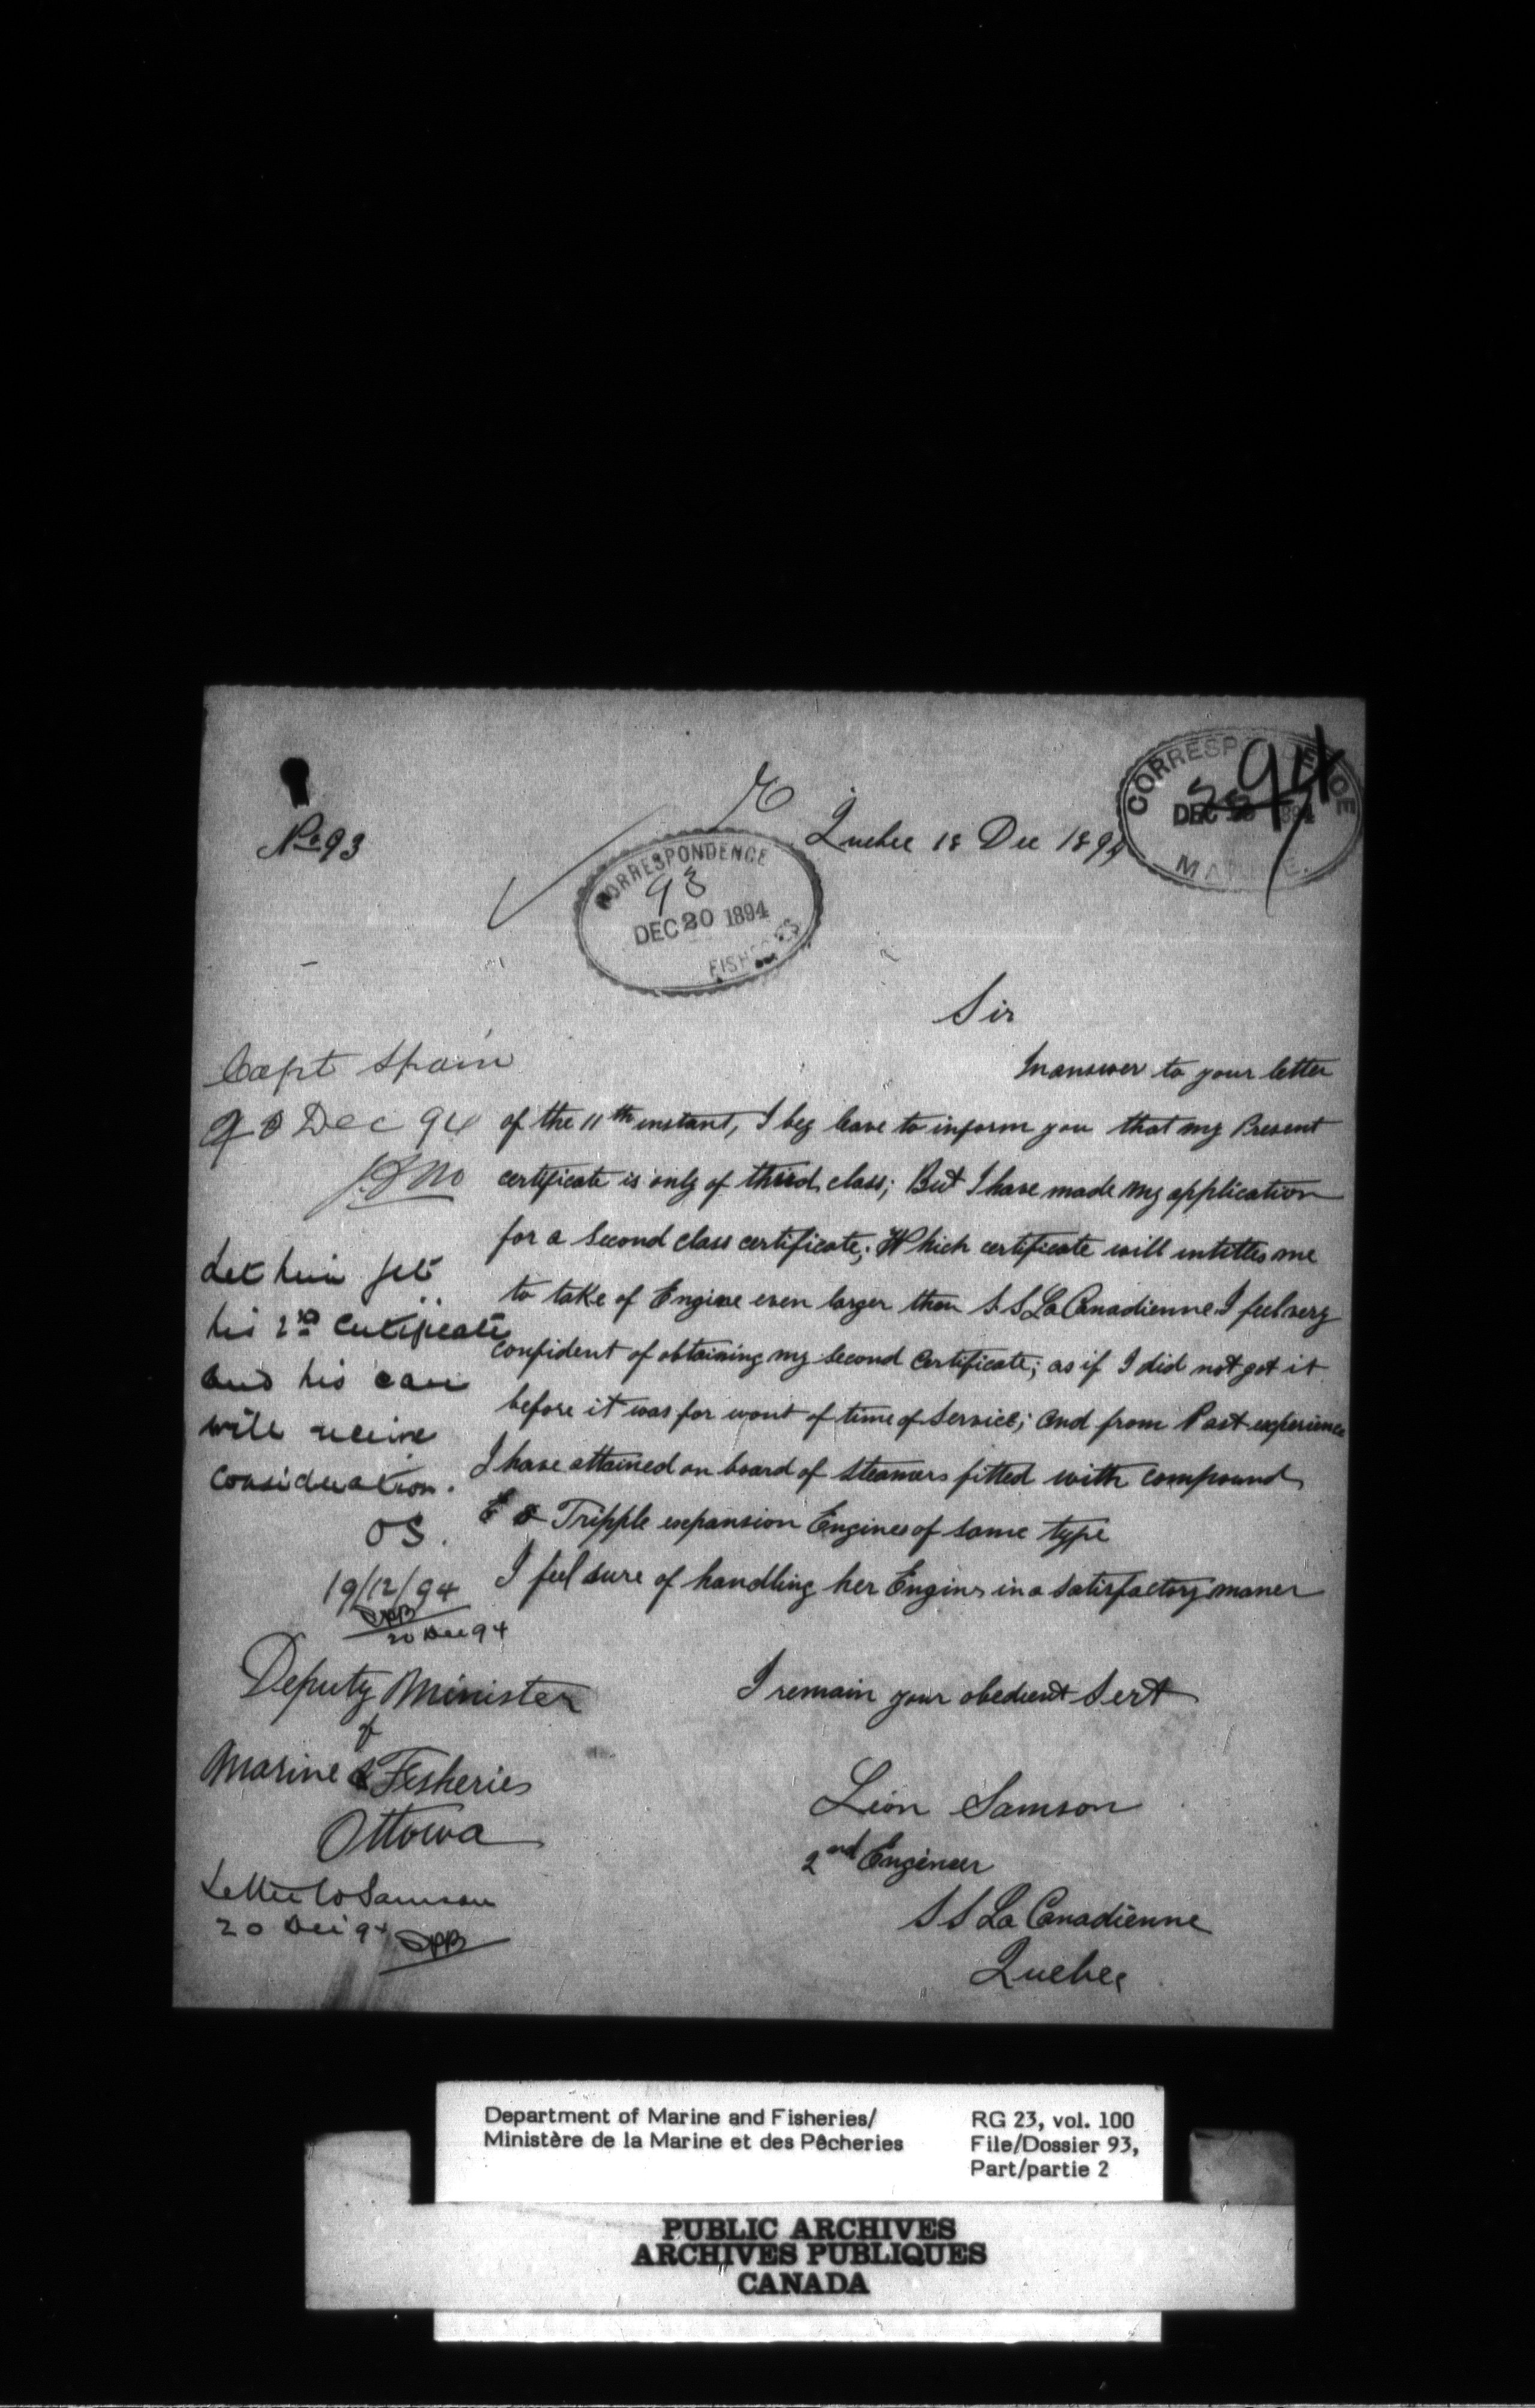 No 93
Quebec 18 Dec 1894
CORRESPONDENCE
DEC 1894
MARINE.
94
CORRESPONDENCE
93
DEC 20 1894
FISHERIES
Sir
In answer to your letter
of the 11th instant, I beg leave to inform you that my Present
certificate is only of third class; But I have made my application
for a Second class certificate; Which certificate will intitles me
to take of Engine even larger than S.S La Canadienne. I feel very
confident of obtaining my Second Certificate; as if I did not got it
before it was for wont of time of Service; and from Past experience
I have attained on board of Steamers fitted with compound
& Tripple expansion Engines of same type
I feel sure of handling her Engins in a satisfactory maner
I remain your obedient Sert
Léon Samson
2nd Engineer
S S La Canadienne
Quebec
Capt Spain
20 Dec 94
Let him get
his 2nd Certificate
and his case
will receive
consideration.
OS.
19/12/94
20 Dec 94
Deputy Minister
of
Marine & Fisheries
Ottowa
Letter to Samson
20 Dec 94
Department of Marine and Fisheries/
Ministère de la Marine et des Pêcheries
RG 23, vol. 100
File/Dossier 93,
Part/partie 2
PUBLIC ARCHIVES
ARCHIVES PUBLIQUES
CANADA